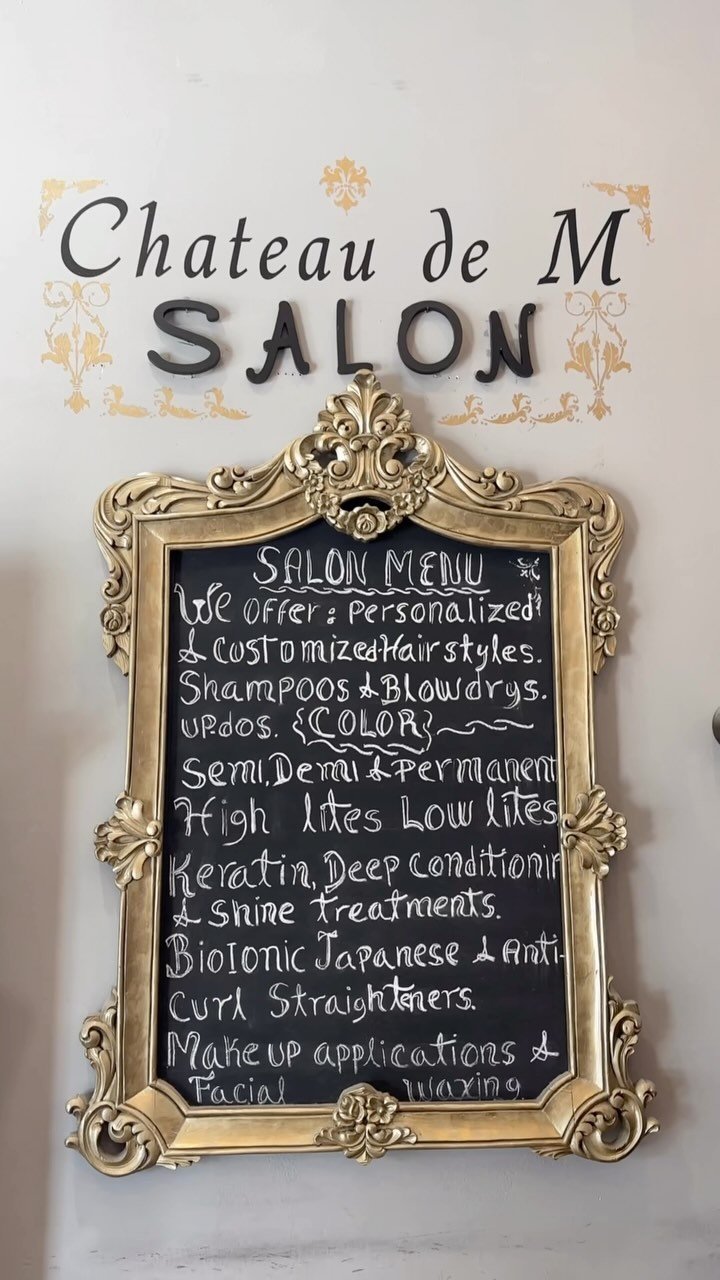 Chateau de M
SALON
SALON MENU
We offer: Personalized
& Customized Hair styles.
Shampoos & Blowdrys.
UP.dos. {COLOR}
Semi, Demi & Permanent
High lites Low lites
Keratin, Deep conditionin
& Shine treatments.
BioIonic Japanese & Anti-
Curl Straighteners.
Make up applications &
Facial waxing